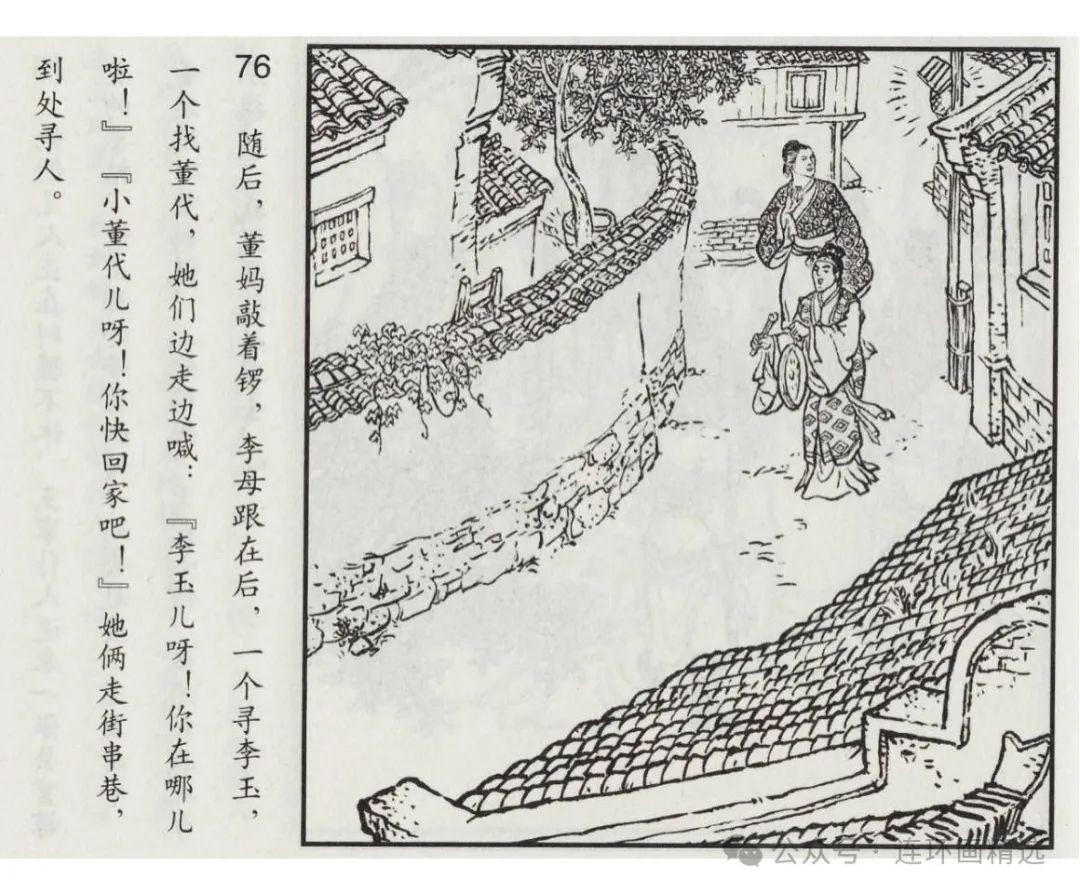 76
随后，董妈敲着锣，李母跟在后，一个寻李玉，
一个找董代，她们边走边喊：『李玉儿呀！你在哪儿
啦！』『小董代儿呀！你快回家吧！』她俩走街串巷，
到处寻人。
公众号·连环画精选